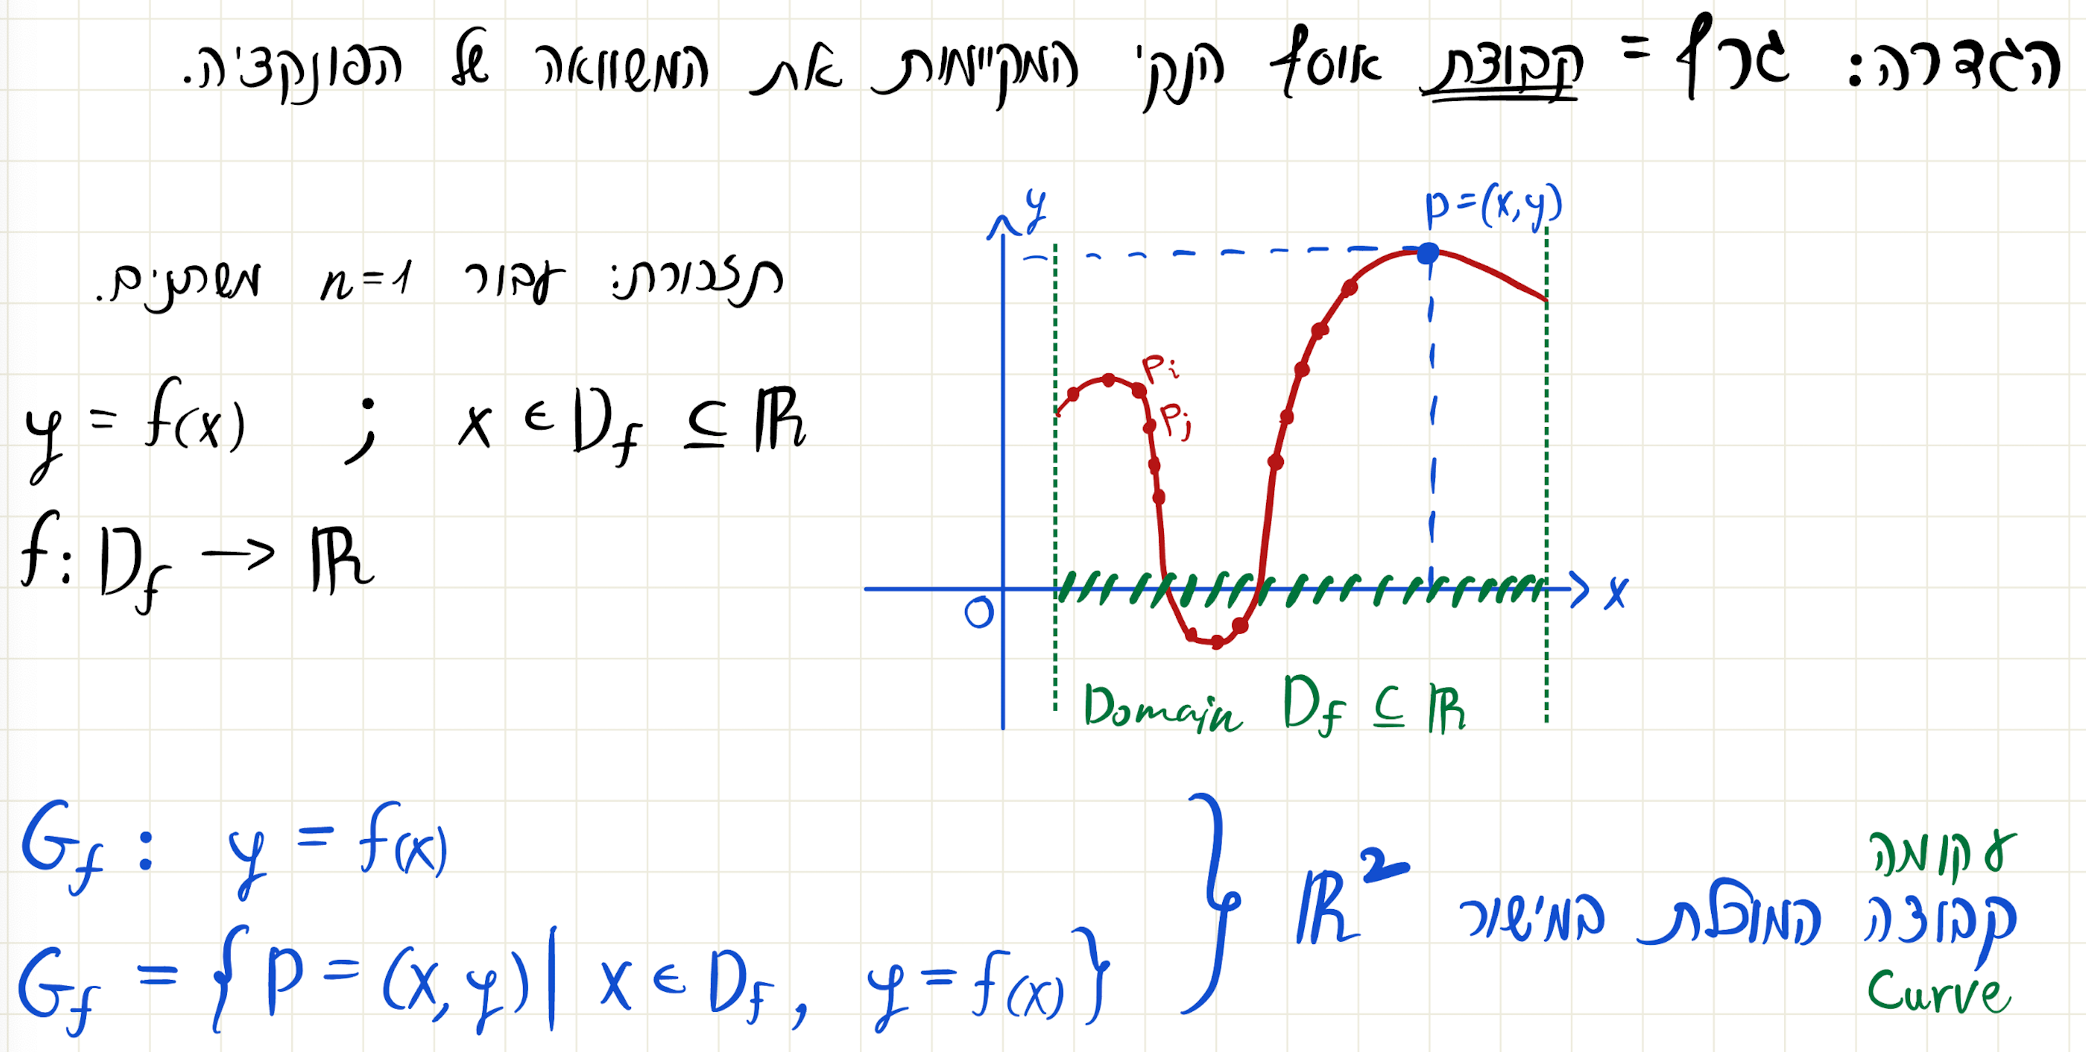 הגדרה: גרף = קבוצת אוסף הנק' המקיימות את המשוואה של הפונקציה.
תזכורת: עבור n=1 משתנים.
y = f(x) ; x ∈ D_f ⊆ ℝ
f: D_f → ℝ
y
p=(x,y)
P_i
P_j
O
x
Domain D_f ⊆ ℝ
G_f : y = f(x)
G_f = { p = (x,y) | x ∈ D_f , y = f(x) }
עקומה
קבוצה המוכלת במישור ℝ²
Curve